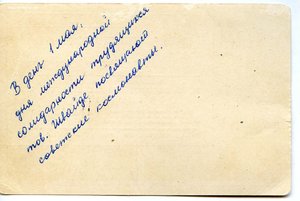 В день 1 мая,
дня международной
солидарности трудящихся
тов. Швайде, посвящают
советские космонавты.